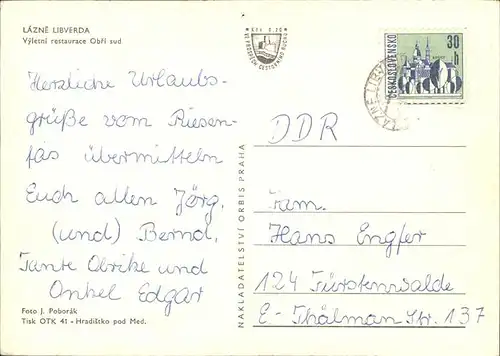 LÁZNĚ LIBVERDA
Výletní restaurace Obří sud
Herzliche Urlaubs-
grüße vom Riesen-
fas übermitteln
Euch allen Jörg,
(und) Bernd,
Tante Ulrike und
Onkel Edgar
Foto J. Poborák
Tisk OTK 41 - Hradištko pod Med.
NAKLADATELSTVÍ ORBIS PRAHA
ČESKOSLOVENSKO
30
h
LÁZNĚ LIBV
DDR
Fam.
Hans Engfer
124 Fürstenwalde
E-Thälman Str. 137